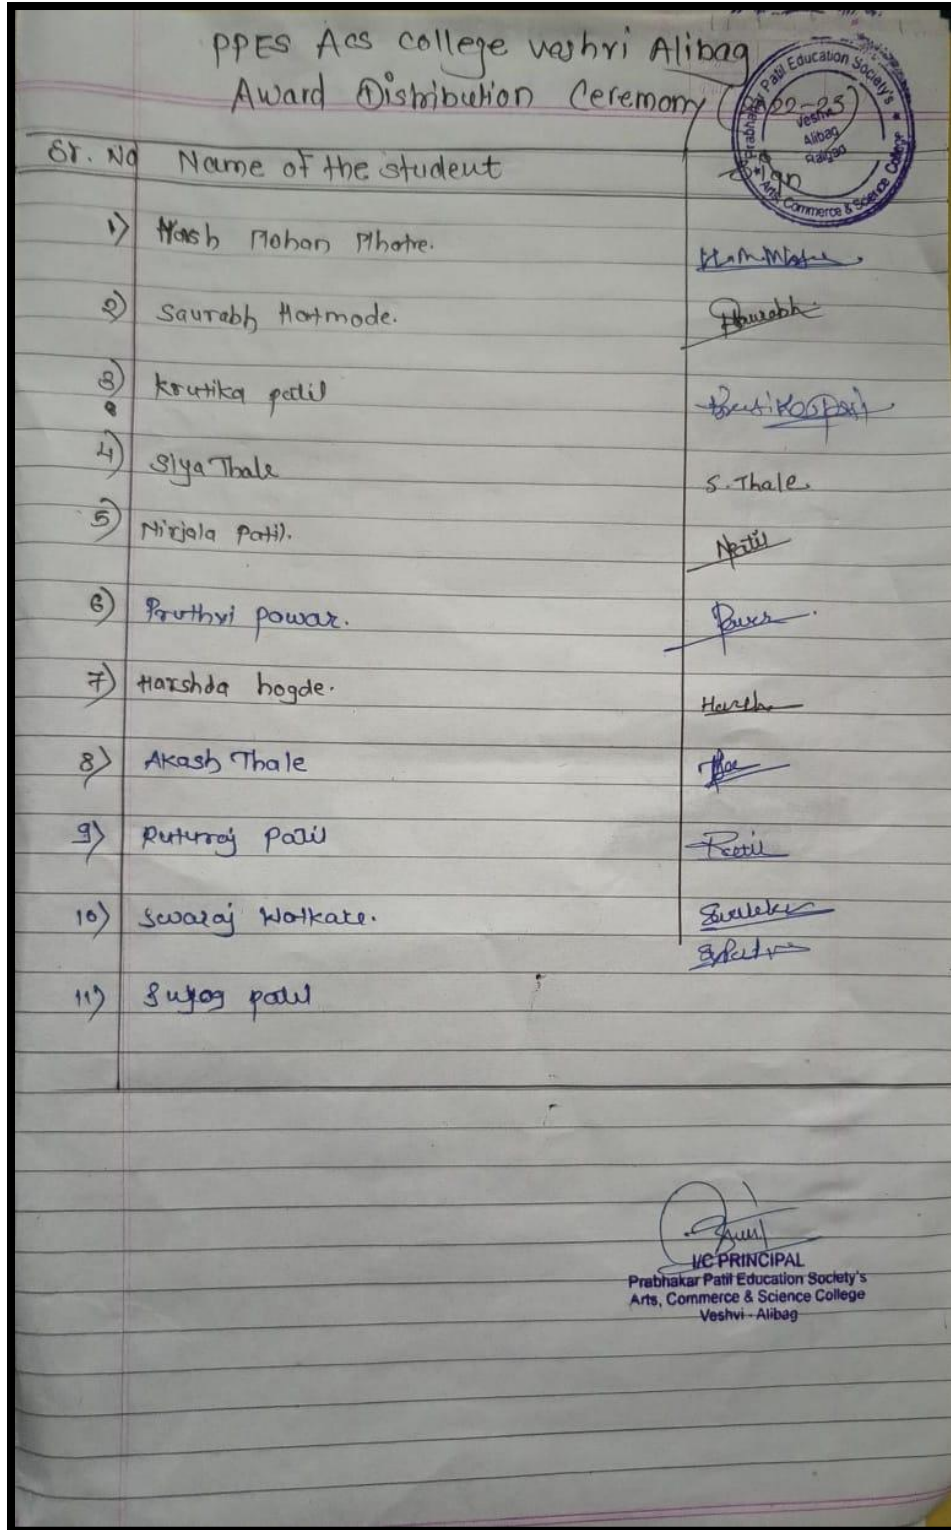 PPES Acs college veshvi Alibag
Award Distribution Ceremony (2022-23)
Prabhakar Patil Education Society's
Veshvi
Alibag
Raigad
Arts, Commerce & Science College
Sr. No Name of the student Sign
1) Harsh Mohan Mhatre. H.M.Mhatre
2) Saurabh Hatmode. Saurabh
3) Krutika patil Krutika Patil
4) Siya Thale S. Thale.
5) Nirjala Patil. NPatil
6) Pruthvi powar.
7) Harshda bogde. Harsh
8) Akash Thale
9) Ruturaj Patil
10) Swaraj Watkare.
11) Suyog patil
I/C PRINCIPAL
Prabhakar Patil Education Society's
Arts, Commerce & Science College
Veshvi - Alibag